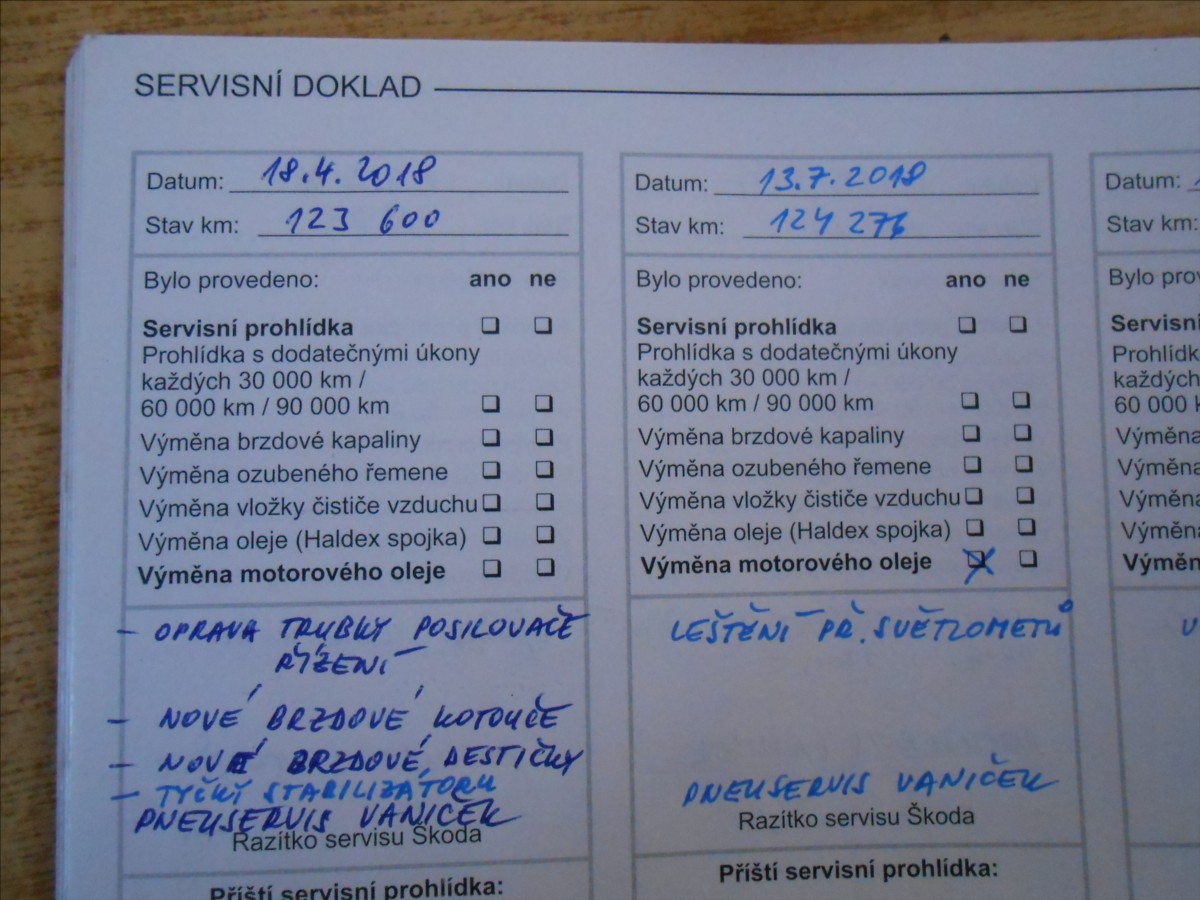 SERVISNÍ DOKLAD
Datum: 18.4.2018
Stav km: 123 600
Bylo provedeno: ano ne
Servisní prohlídka
Prohlídka s dodatečnými úkony
každých 30 000 km /
60 000 km / 90 000 km
Výměna brzdové kapaliny
Výměna ozubeného řemene
Výměna vložky čističe vzduchu
Výměna oleje (Haldex spojka)
Výměna motorového oleje
- OPRAVA TRUBKY POSILOVAČE
ŘÍZENÍ
- NOVÉ BRZDOVÉ KOTOUČE
- NOVÉ BRZDOVÉ DESTIČKY
- TYČKY STABILIZÁTORU
PNEUSERVIS VANIČEK
Razítko servisu Škoda
Příští servisní prohlídka:
Datum: 13.7.2018
Stav km: 124 276
Bylo provedeno: ano ne
Servisní prohlídka
Prohlídka s dodatečnými úkony
každých 30 000 km /
60 000 km / 90 000 km
Výměna brzdové kapaliny
Výměna ozubeného řemene
Výměna vložky čističe vzduchu
Výměna oleje (Haldex spojka)
Výměna motorového oleje
LEŠTĚNÍ PŘ. SVĚTLOMETŮ
PNEUSERVIS VANIČEK
Razítko servisu Škoda
Příští servisní prohlídka:
Datum:
Stav km:
Bylo pro
Servisn
Prohlídk
každých
60 000
Výměna
Výměna
Výměna
Výměna
Výměn